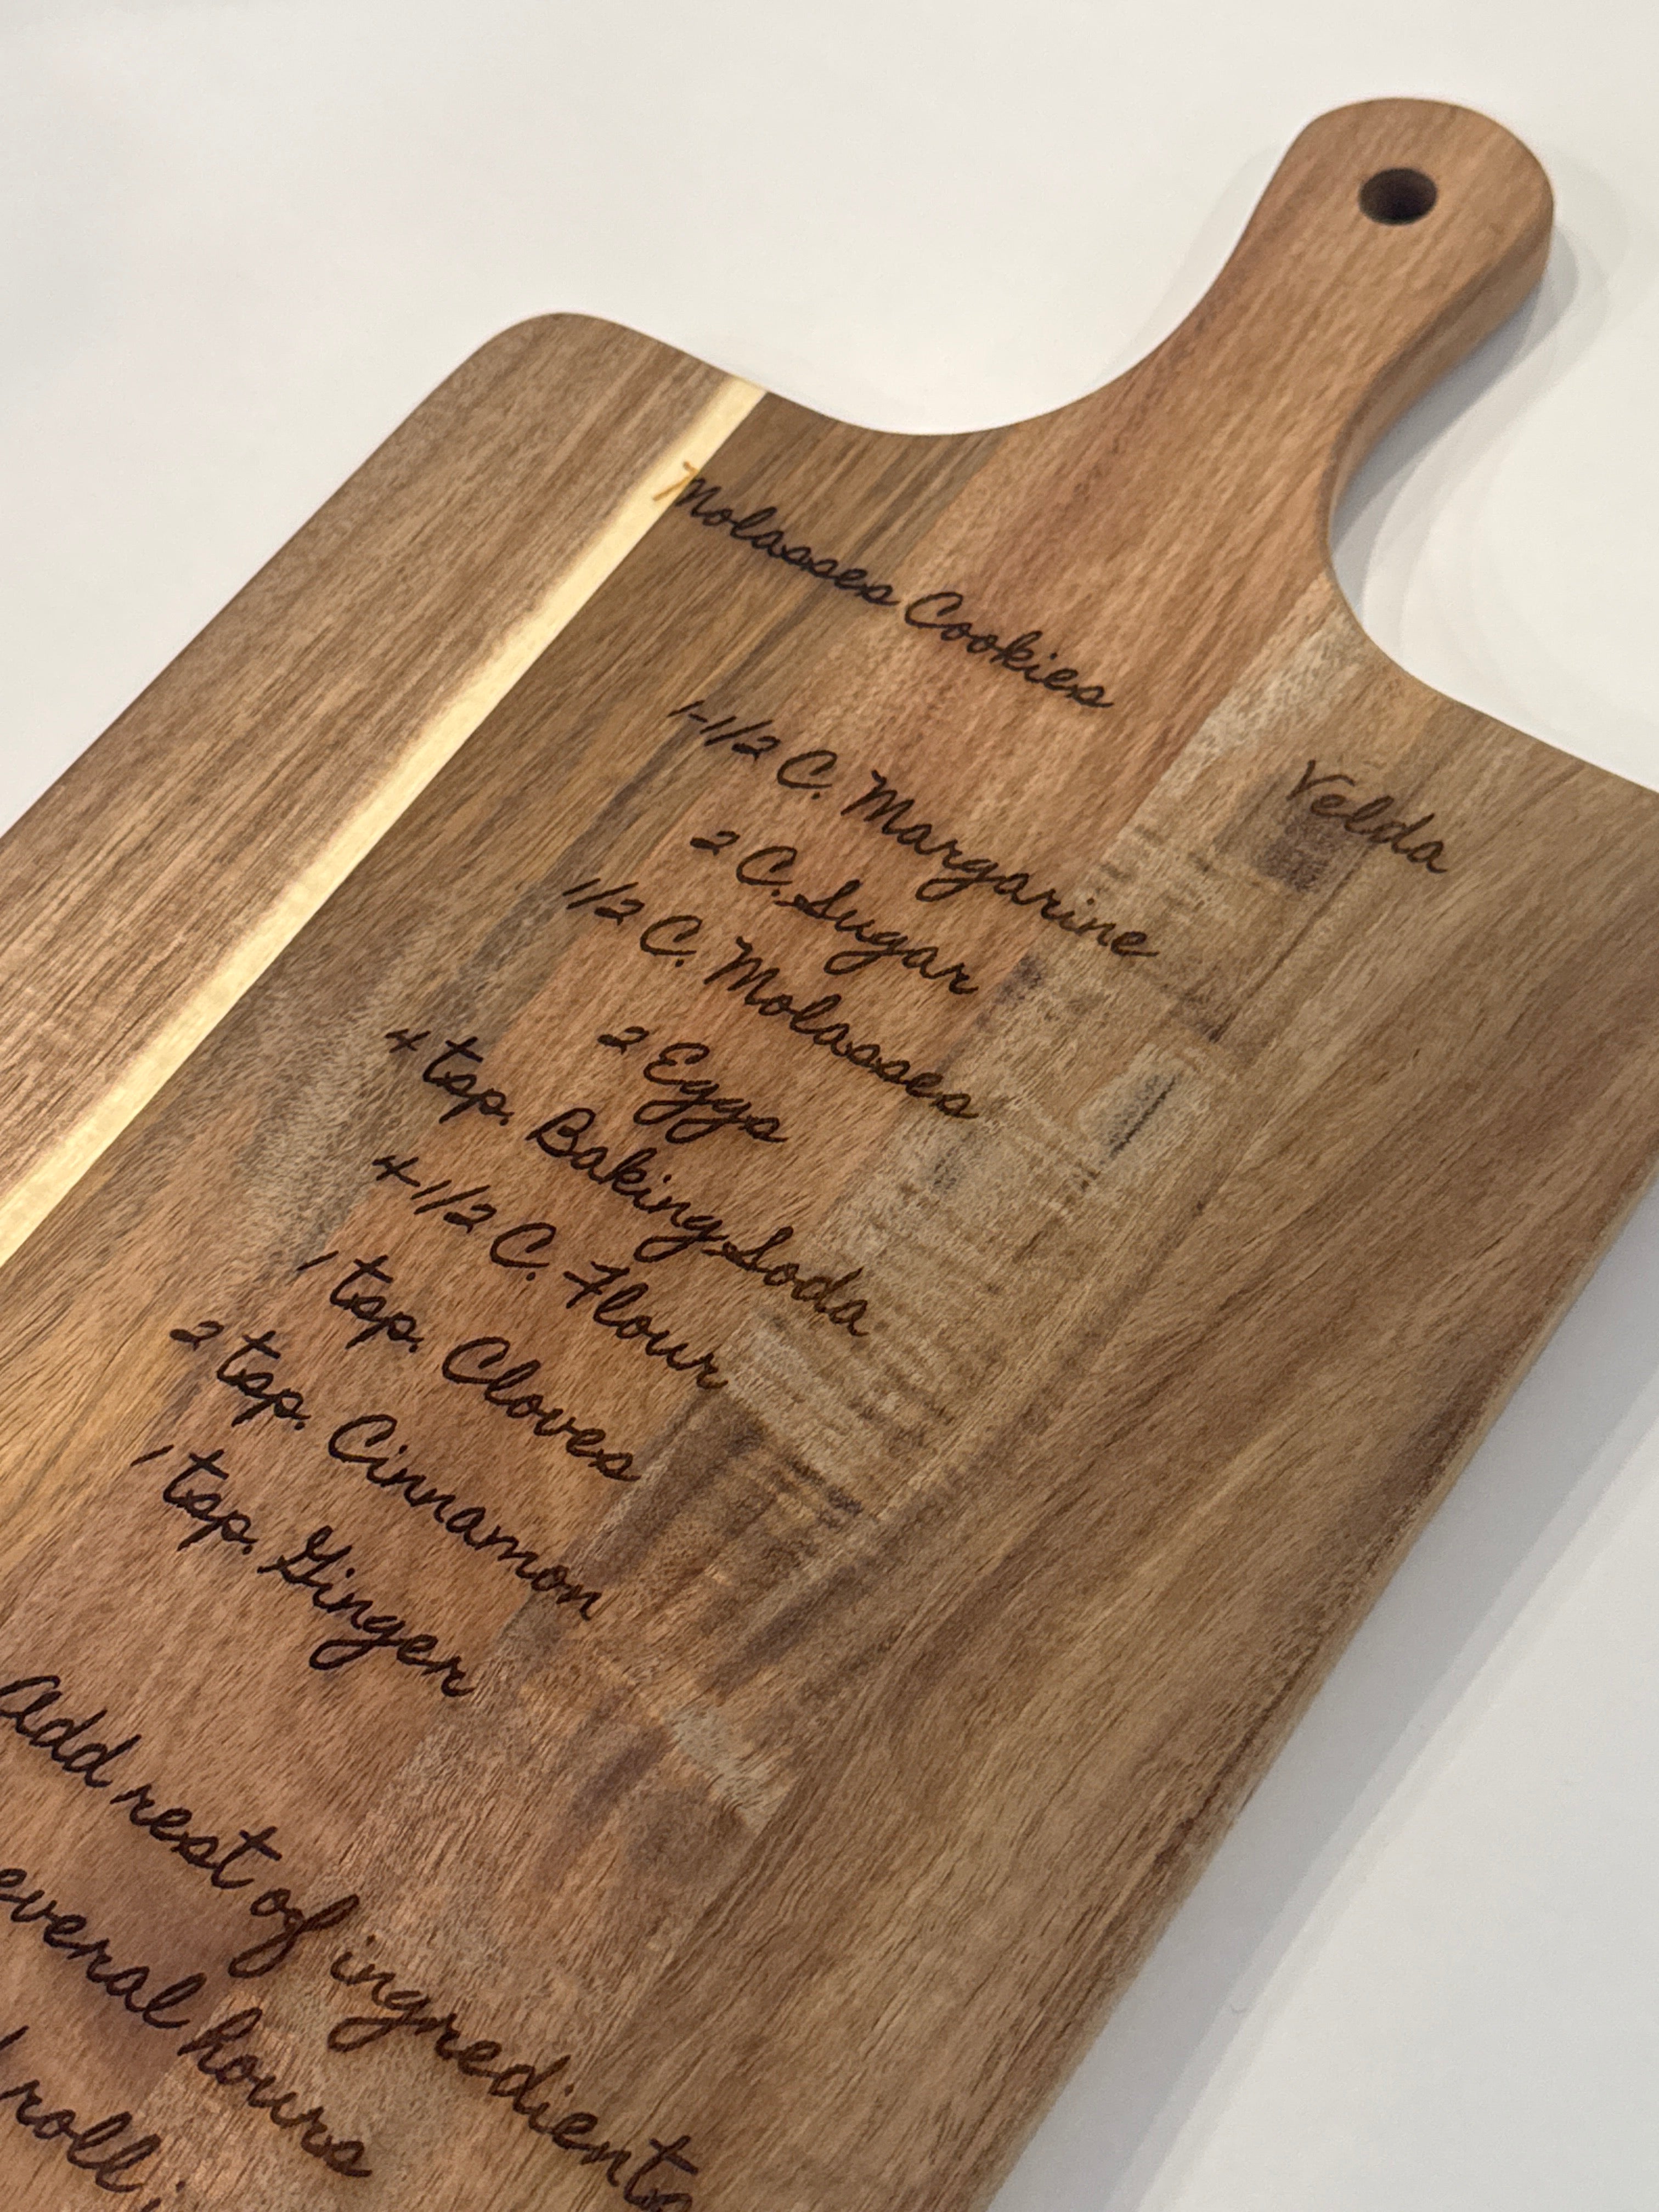 Molasses Cookies
Velda
1-1/2 C. Margarine
2 C. Sugar
1/2 C. Molasses
2 Eggs
4 tsp. Baking Soda
4-1/2 C. Flour
1 tsp. Cloves
2 tsp. Cinnamon
1 tsp. Ginger
Add rest of ingredients
everal hours
roll